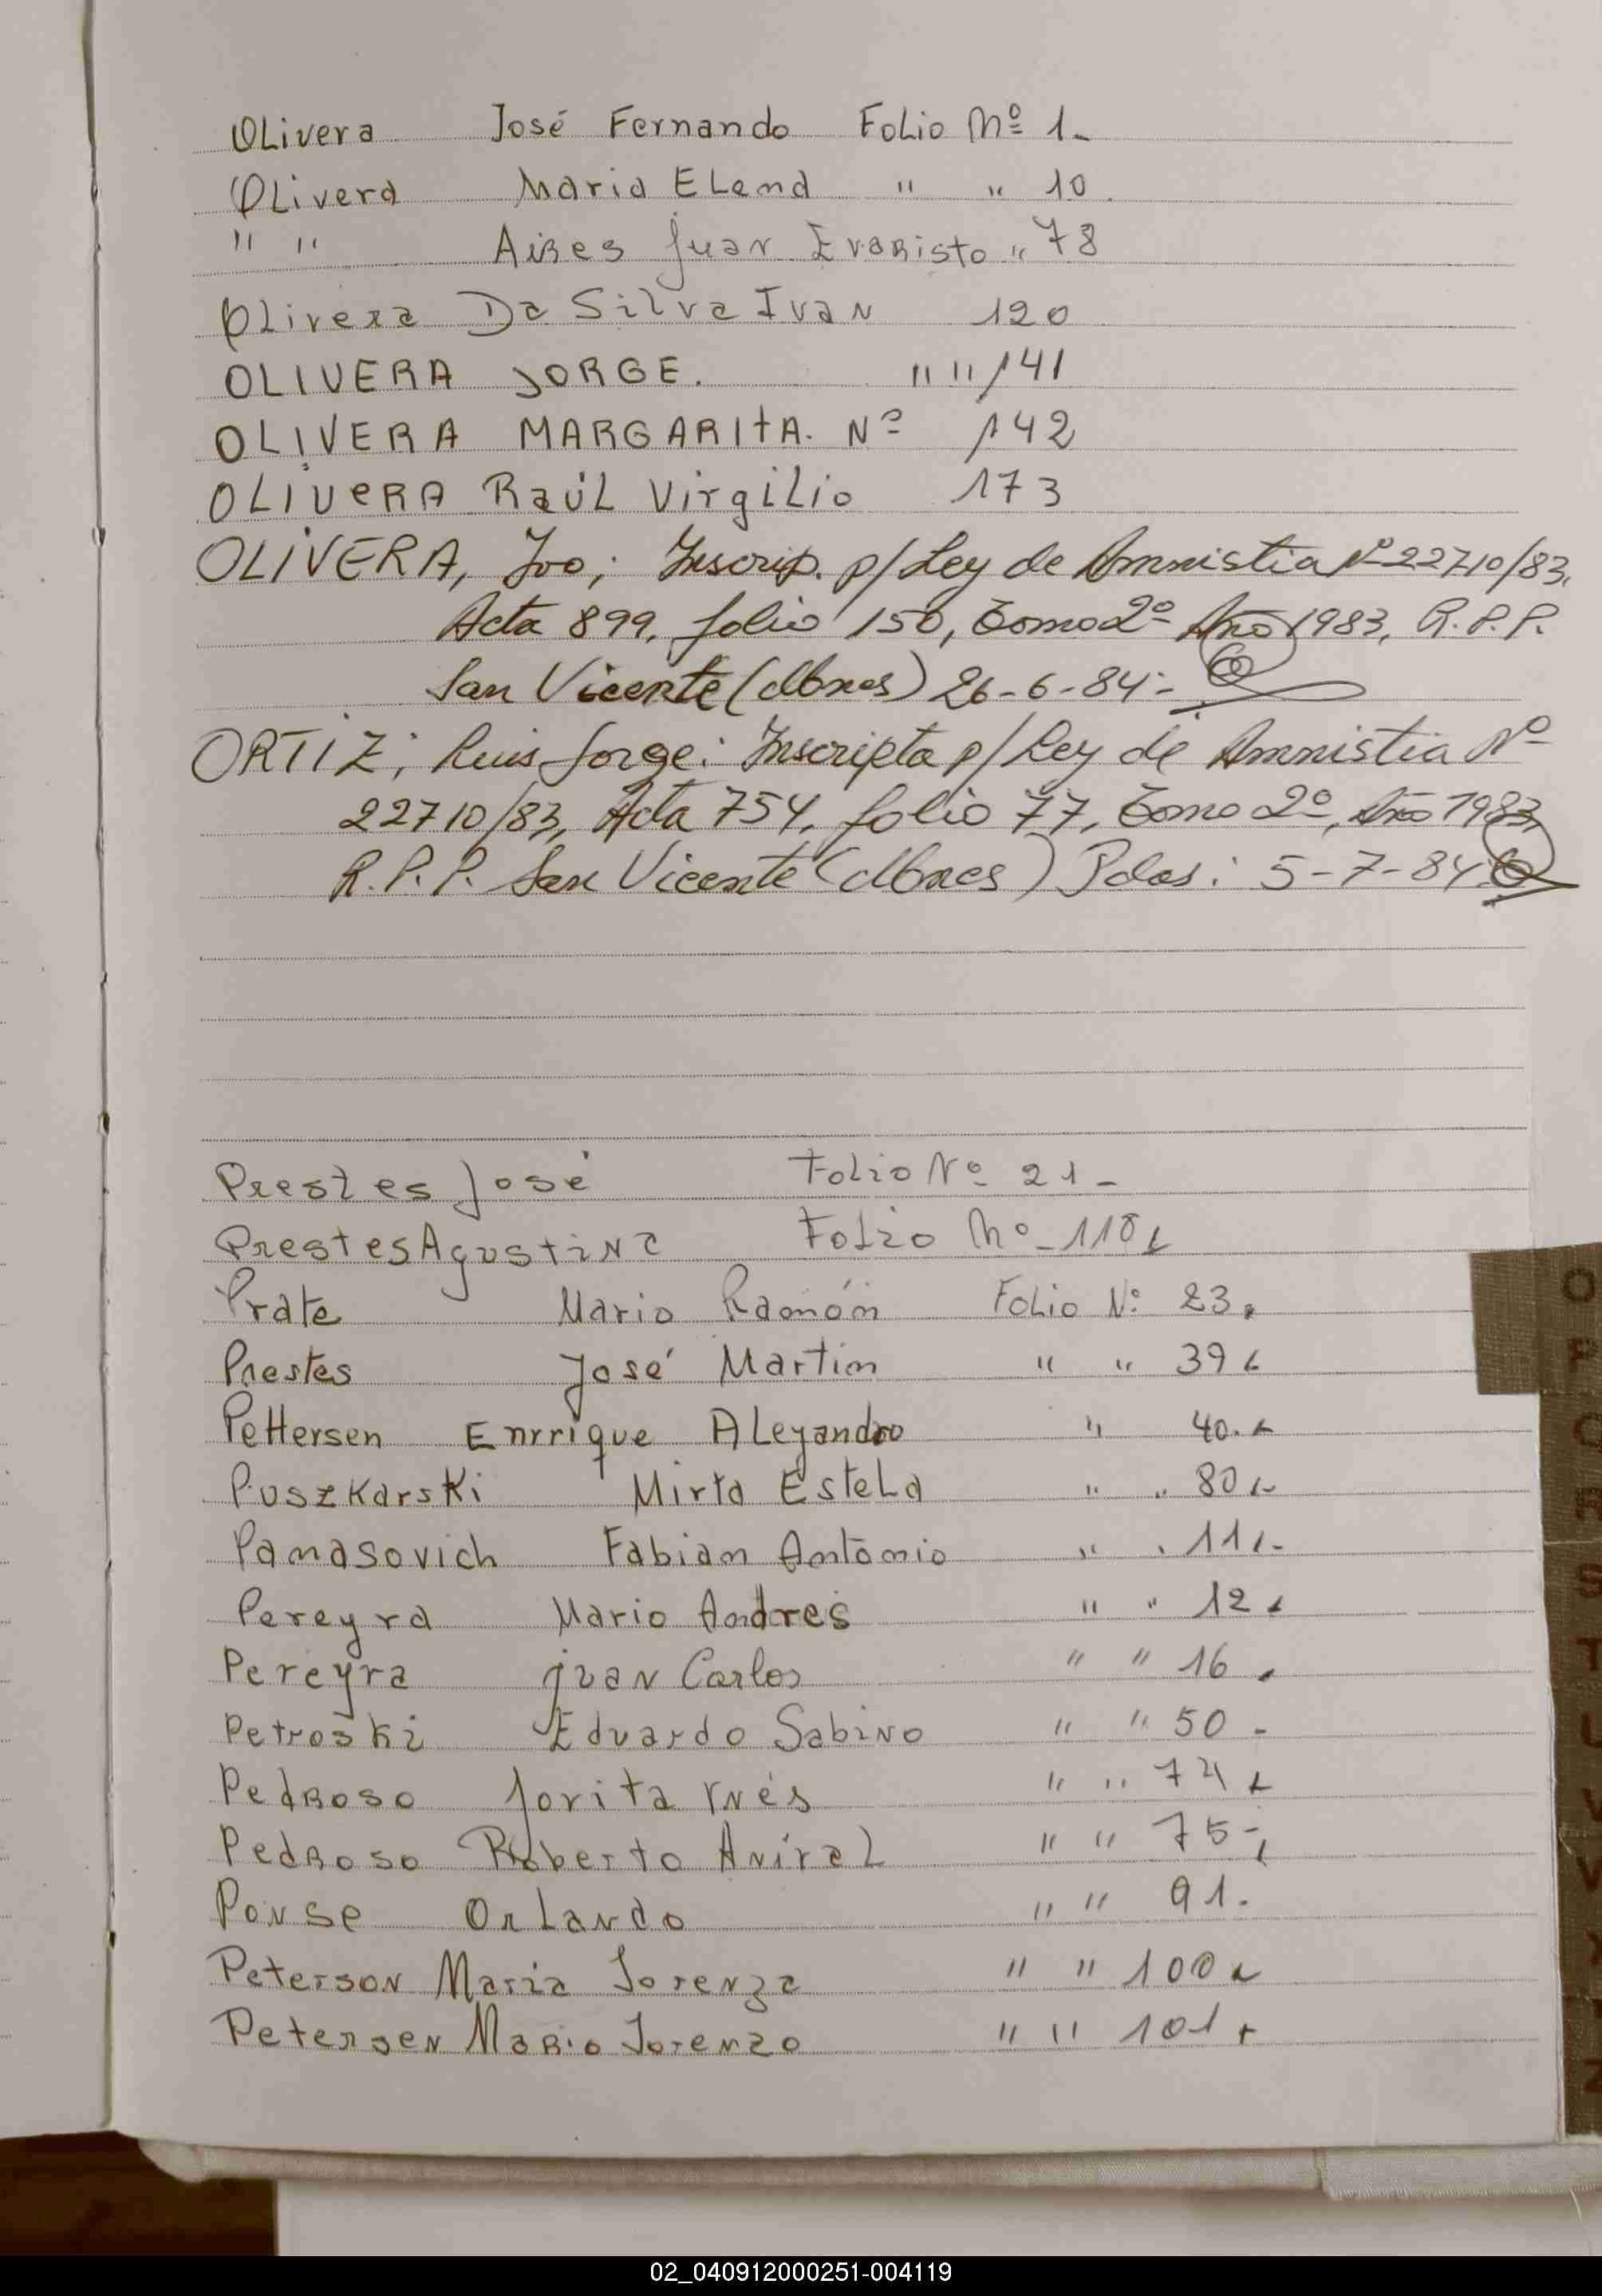 Olivera José Fernando Folio Nº 1-
Olivera Maria Elena " " 10
" " Aires Juan Evaristo " 78
Olivera Da Silva Ivan 120
OLIVERA JORGE. " " 141
OLIVERA MARGARITA. Nº 142
OLIVERA Raúl Virgilio 173
OLIVERA, Ivo; Inscrip. p/ Ley de Amnistia Nº 22710/83,
Acta 899, folio 150, Tomo 2º Año 1983, R.P.P.
San Vicente (Mnes) 26-6-84-
ORTIZ; Luis Jorge: Inscripta p/ Ley de Amnistia Nº
22710/83, Acta 754, folio 77, Tomo 2º, Año 1983,
R.P.P. San Vicente (Mnes) : 5-7-84
Prestes José Folio Nº 21-
Prestes Agustina Folio Nº
Prate Mario Ramón Folio Nº 23.
Prestes José Martin " " 39
Pettersen Enrrique Aleyandro " 40.
Puszkarski Mirta Estela " " 80
Panasovich Fabian Antonio " "
Pereyra Mario Andres " " 12
Pereyra juan Carlos " " 16
Petroski Eduardo Sabino " " 50 -
Pedroso Jorita Inés " " 74
Pedroso Roberto Anival " " 75-
Ponse Orlando " " 91.
Peterson Maria Lorenza " " 100
Petersen Mario Lorenzo " " 101
O
P
Q
R
S
T
U
V
X
Z
02_040912000251-004119